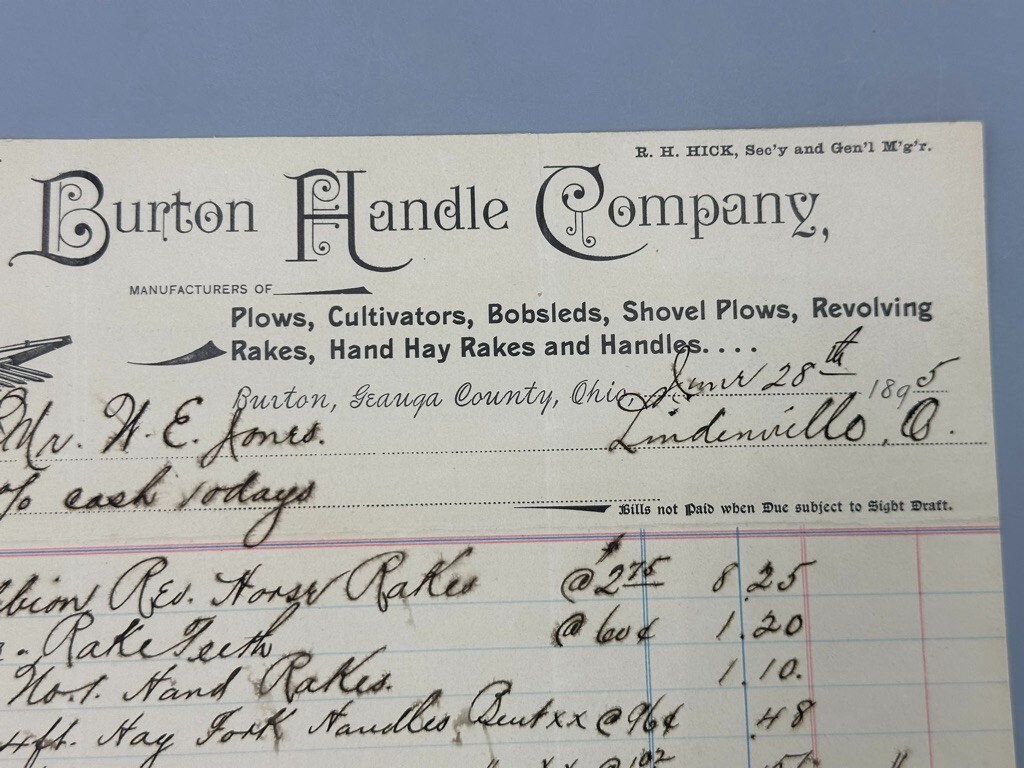 R. H. HICK, Sec'y and Gen'l M'g'r.
Burton Handle Company,
MANUFACTURERS OF
Plows, Cultivators, Bobsleds, Shovel Plows, Revolving
Rakes, Hand Hay Rakes and Handles....
Burton, Geauga County, Ohio, June 28th 1895
Mr. W. E. Jones. Lindenville, O.
% cash 10 days
Bills not Paid when Due subject to Sight Draft.
Albion Rev. Horse Rakes @ $2 75 8.25
Rake Teeth @ 60¢ 1.20
No. 1. Hand Rakes. 1.10.
4ft. Hay Fork Handles, Bent xx @ 96¢ .48
" xx @ 1 02 .51 "